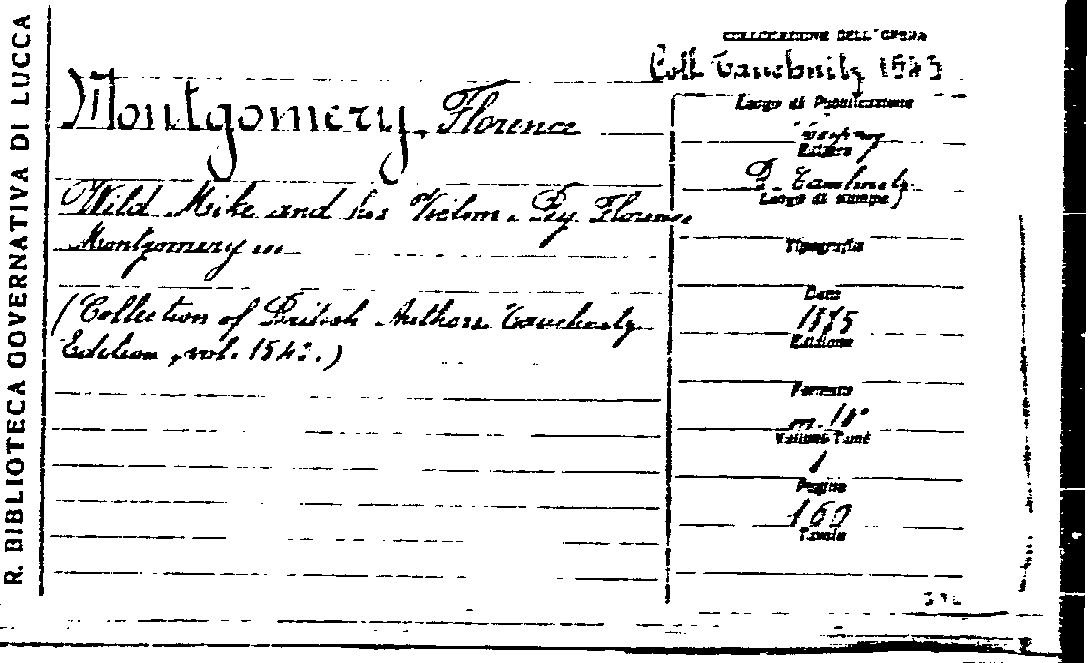 R. BIBLIOTECA GOVERNATIVA DI LUCCA
COLLOCAZIONE DELL'OPERA
Coll. Tauchnitz 1543
Montgomery, Florence
Wild Mike and his Victim. By Florence
Montgomery
(Collection of British Authors Tauchnitz
Edition, vol. 1543.)
Luogo di Pubblicazione
Editore
B. Tauchnitz
Luogo di stampa
Tipografia
Data
1875
Edizione
Formato
Volumi Tomi
1
Pagine
160
Tavole